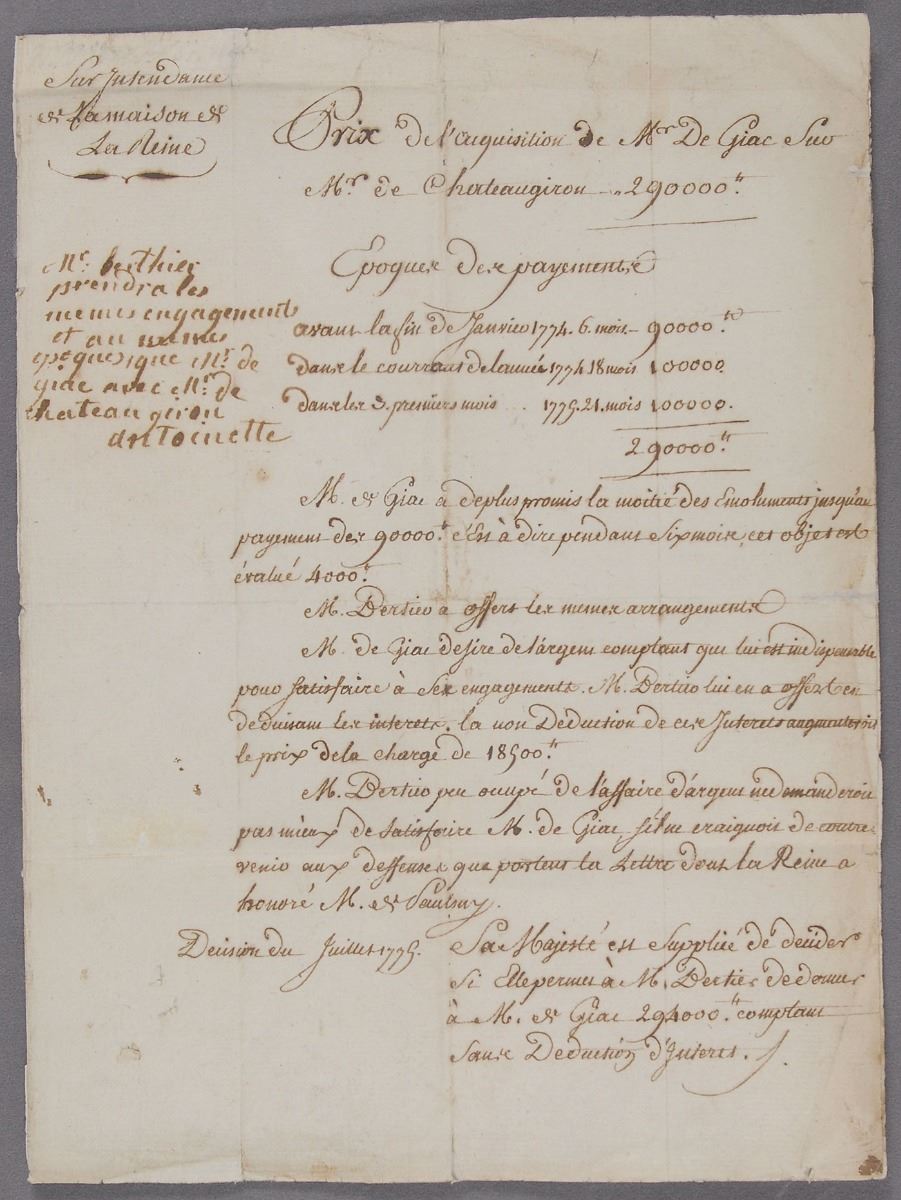 Sur Intendance
de La maison de
La Reine
Prix de l'acquisition de Mr. De Giac Sur
Mr. de Chateaugiron 290000.tt
Mr. berthier
prendra les
memes engagements
et au memes
epoques que Mr. de
giac avec Mr. de
chateau giron
antoinette
Epoques des payements
avant la fin de Janvier 1774. 6. mois 90000.tt
dans le courrant de l'année 1774 18 mois 100000
dans les 3. premiers mois . . 1775. 21. mois 100000.
290000.tt
M. de Giac a deplus promis la moitié des Emoluments jusqu'au
payement des 90000.tt c'Est à dire pendant Six mois, cet objet est
évalué 4000.tt
M. Bertier a offert les memes arrangements
M. de Giac desire de l'argent comptant qui lui est indispensable
pour Satisfaire à Ses engagements. M. Bertier lui en a offert en
deduisant les interets. la non Deduction de ces Interets augmenteroit
le prix de la charge de 18500.tt
M. Bertier peu occupé de l'affaire d'argent ne demanderoit
pas mieux de Satisfaire M. de Giac, s'il ne craignoit de contre
venir aux deffenses que portent la Lettre dont la Reine a
honoré M. de Paulmy.
Decision du Juillet 1775.
Sa Majesté est Suppliée de decider
Si Elle permet à M. Bertier de donner
à M. de Giac 294000.tt comptant
Sans Deduction d'Interets.